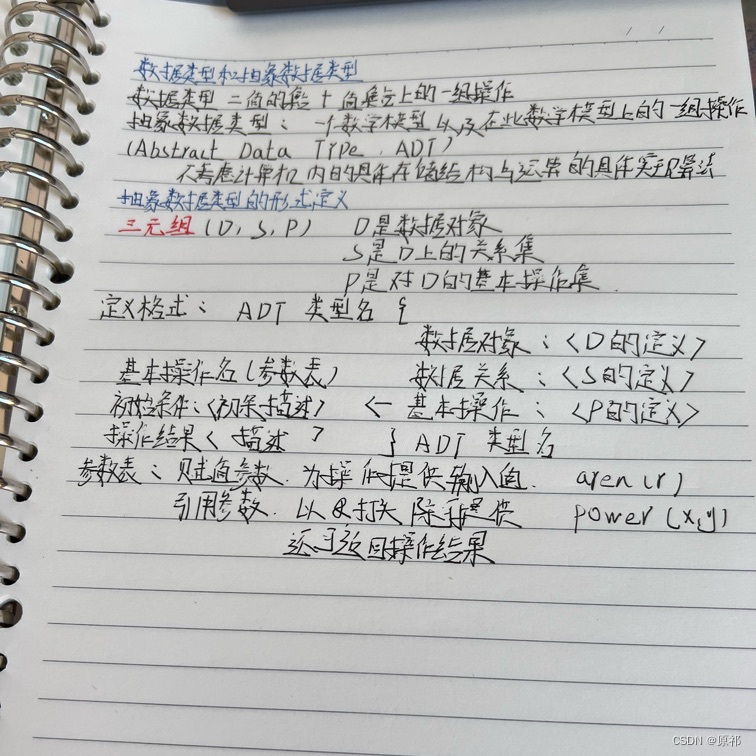 数据类型和抽象数据类型
数据类型 = 值的集合 + 值集合上的一组操作
抽象数据类型：一个数学模型以及在此数学模型上的一组操作
(Abstract Data Type, ADT)
不考虑计算机内的具体存储结构与运算的具体实现算法
抽象数据类型的形式定义
三元组 (D, S, P) D是数据对象
S是D上的关系集
P是对D的基本操作集.
定义格式： ADT 类型名 {
数据对象：<D的定义>
基本操作名(参数表) 数据关系：<S的定义>
初始条件：<初条描述> ← 基本操作：<P的定义>
操作结果<描述> } ADT 类型名
参数表：赋值参数. 为操作提供输入值. area(r)
引用参数. 以&打头 除可提供 power(x,y)
还可返回操作结果
CSDN @原祁